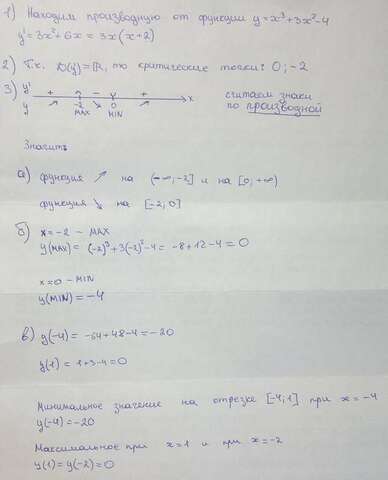 1) Находим производную от функции y=x³+3x²-4
y'=3x²+6x = 3x(x+2)
2) Т.к. D(y)=ℝ, то критические точки: 0; -2
3) y' + - + x
y -2 0
MAX MIN
считаем знаки
по производной
Значит:
а) функция ↗ на (-∞;-2] и на [0;+∞)
функция ↘ на [-2;0]
б) x=-2 - MAX
y(MAX) = (-2)³+3(-2)²-4 = -8+12-4=0
x=0 - MIN
y(MIN) = -4
в) y(-4) = -64+48-4=-20
y(1) = 1+3-4=0
Минимальное значение на отрезке [-4;1] при x=-4
y(-4)=-20
Максимальное при x=1 и при x=-2
y(1)=y(-2)=0